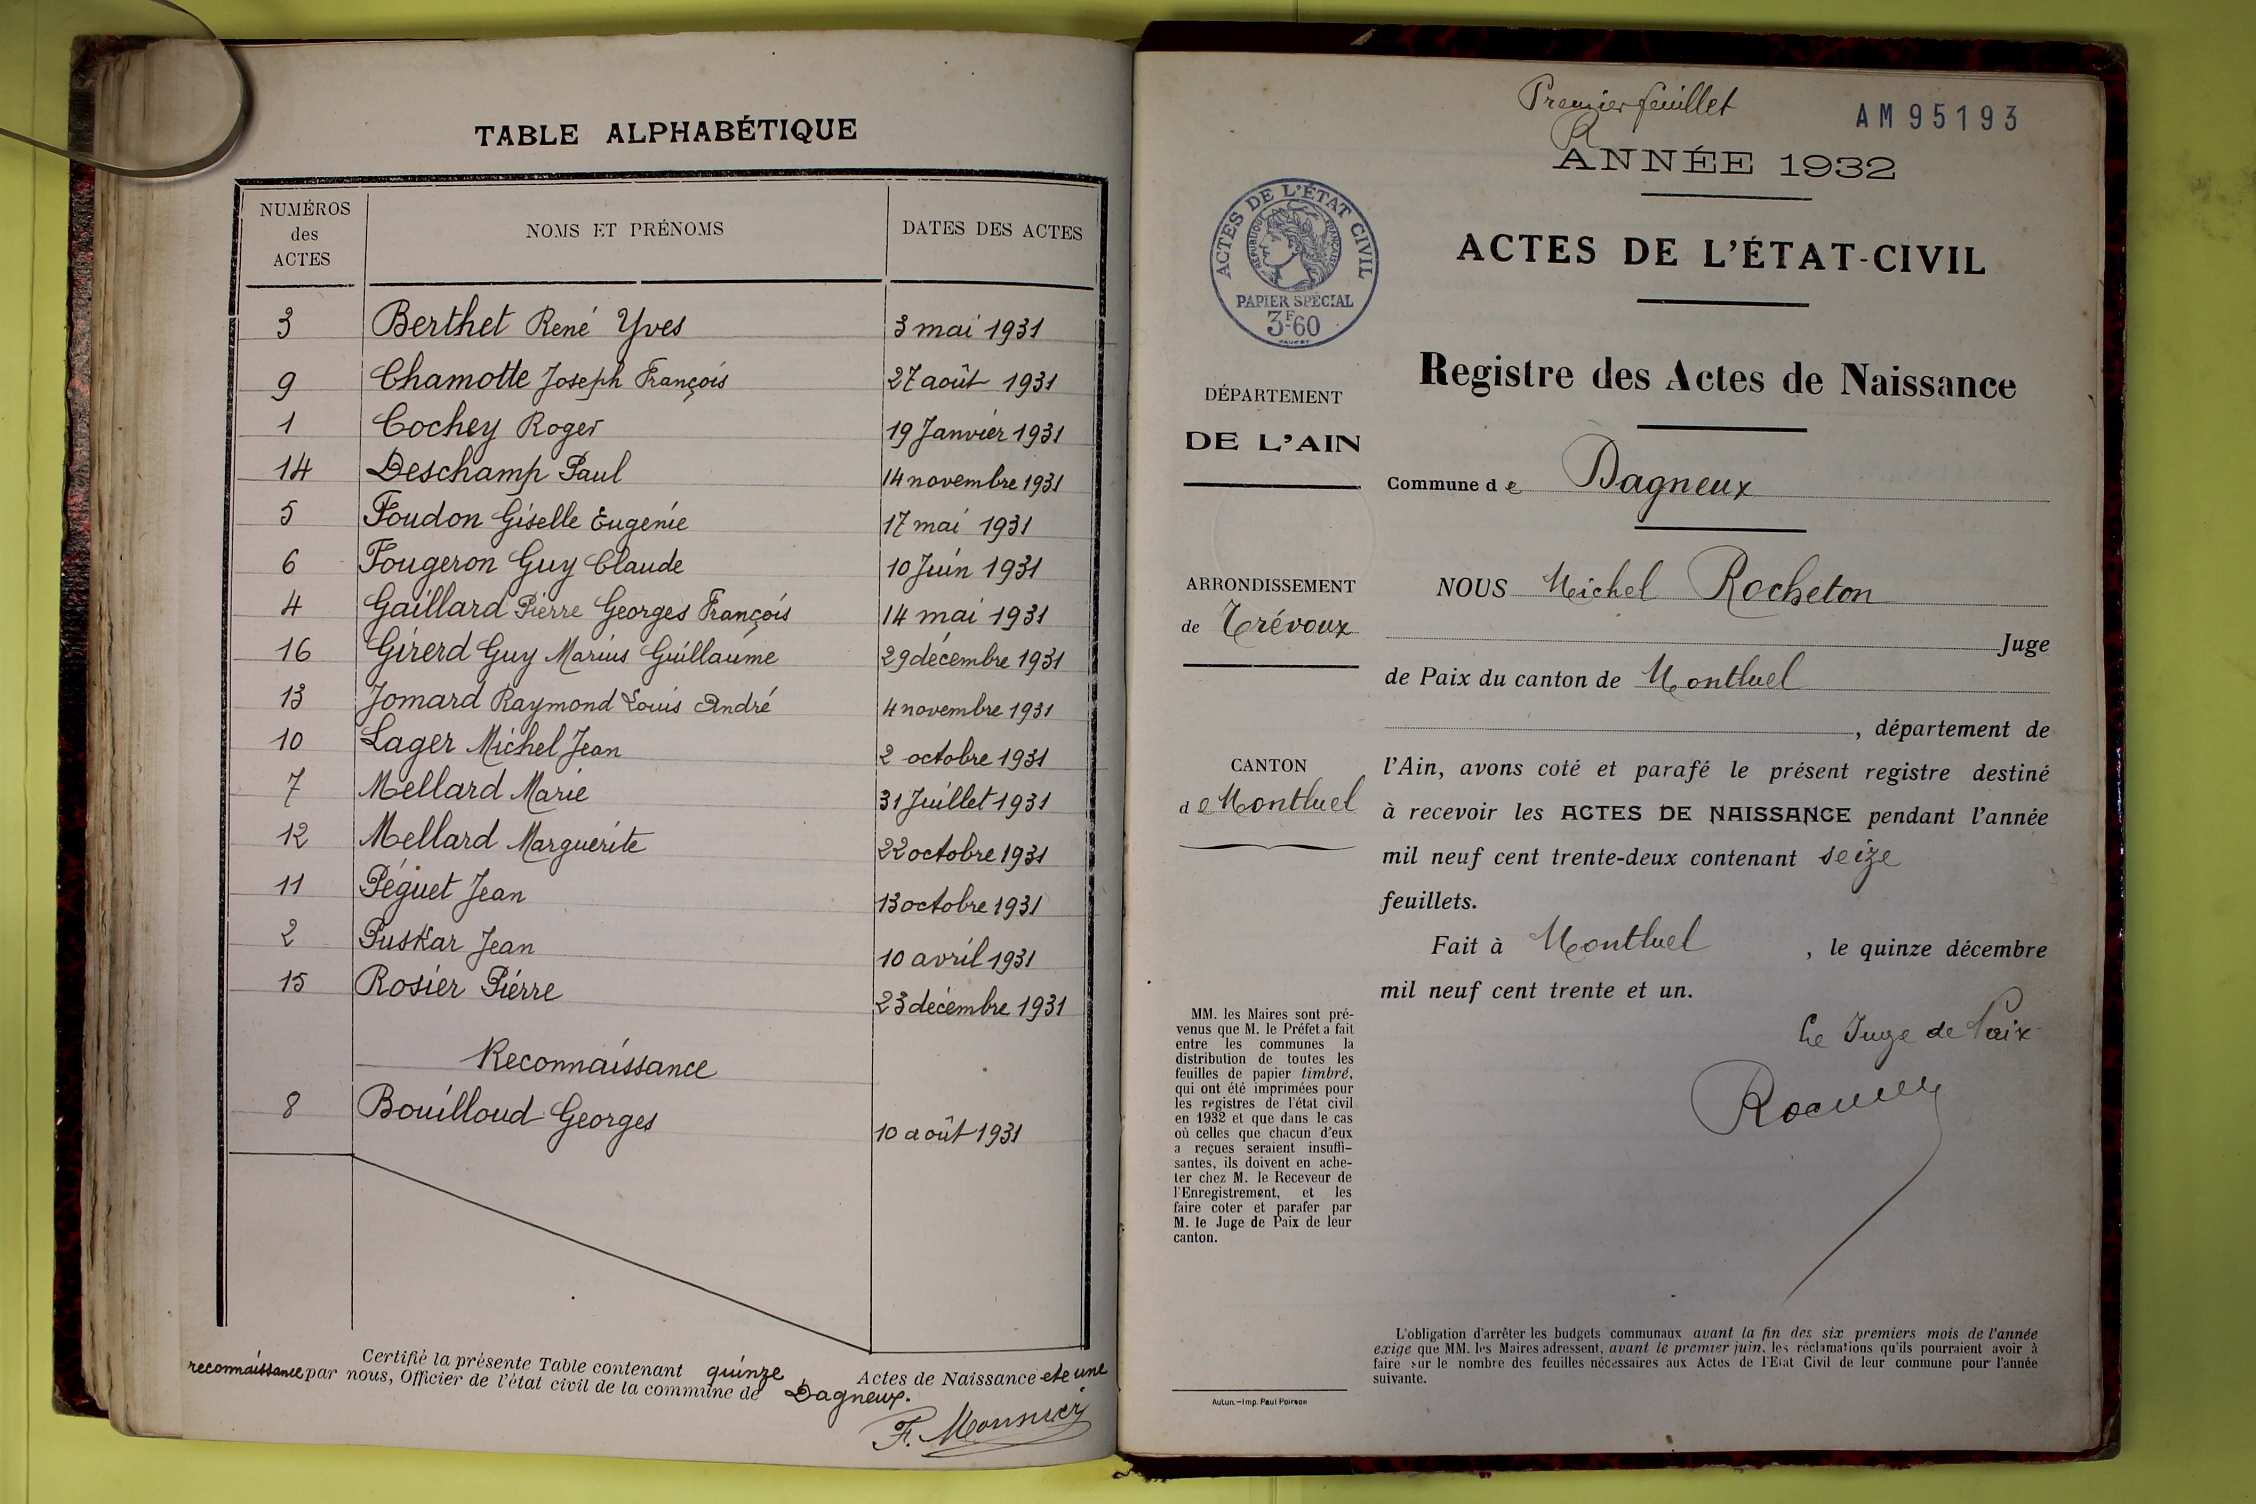 TABLE ALPHABÉTIQUE
NUMÉROS des ACTES NOMS ET PRÉNOMS DATES DES ACTES
3 Berthet René Yves 3 mai 1931
9 Chamotte Joseph François 27 août 1931
1 Cochey Roger 19 Janvier 1931
14 Deschamp Paul 14 novembre 1931
5 Foudon Giselle Eugenie 17 mai 1931
6 Fougeron Guy Claude 10 Juin 1931
4 Gaillard Pierre Georges François 14 mai 1931
16 Girerd Guy Marius Guillaume 29 décembre 1931
13 Jomard Raymond Louis André 4 novembre 1931
10 Lager Michel Jean 2 octobre 1931
7 Mellard Marie 31 Juillet 1931
12 Mellard Marguerite 22 octobre 1931
11 Péguet Jean 13 octobre 1931
2 Puskar Jean 10 avril 1931
15 Rosier Pierre 23 décembre 1931
Reconnaissance
8 Bouilloud Georges 10 août 1931
Certifié la présente Table contenant quinze Actes de Naissance et une
reconnaissance par nous, Officier de l'état civil de la commune de Dagneux.
Premier feuillet
AM95193
R
ANNÉE 1932
ACTES DE L'ÉTAT CIVIL
RÉPUBLIQUE FRANÇAISE
PAPIER SPÉCIAL
3F60
ACTES DE L'ÉTAT-CIVIL
Registre des Actes de Naissance
DÉPARTEMENT
DE L'AIN
Commune de Dagneux
ARRONDISSEMENT
de Trévoux
CANTON
de Montluel
NOUS Michel Rocheton
Juge
de Paix du canton de Montluel
, département de
l'Ain, avons coté et parafé le présent registre destiné
à recevoir les ACTES DE NAISSANCE pendant l'année
mil neuf cent trente-deux contenant seize
feuillets.
Fait à Montluel , le quinze décembre
mil neuf cent trente et un.
Le Juge de Paix
MM. les Maires sont pré-
venus que M. le Préfet a fait
entre les communes la
distribution de toutes les
feuilles de papier timbré,
qui ont été imprimées pour
les registres de l'état civil
en 1932 et que dans le cas
où celles que chacun d'eux
a reçues seraient insuffi-
santes, ils doivent en ache-
ter chez M. le Receveur de
l'Enregistrement, et les
faire coter et parafer par
M. le Juge de Paix de leur
canton.
L'obligation d'arrêter les budgets communaux avant la fin des six premiers mois de l'année
exige que MM. les Maires adressent, avant le premier juin, les réclamations qu'ils pourraient avoir à
faire sur le nombre des feuilles nécessaires aux Actes de l'Etat Civil de leur commune pour l'année
suivante.
Autun.—Imp. Paul Poirson